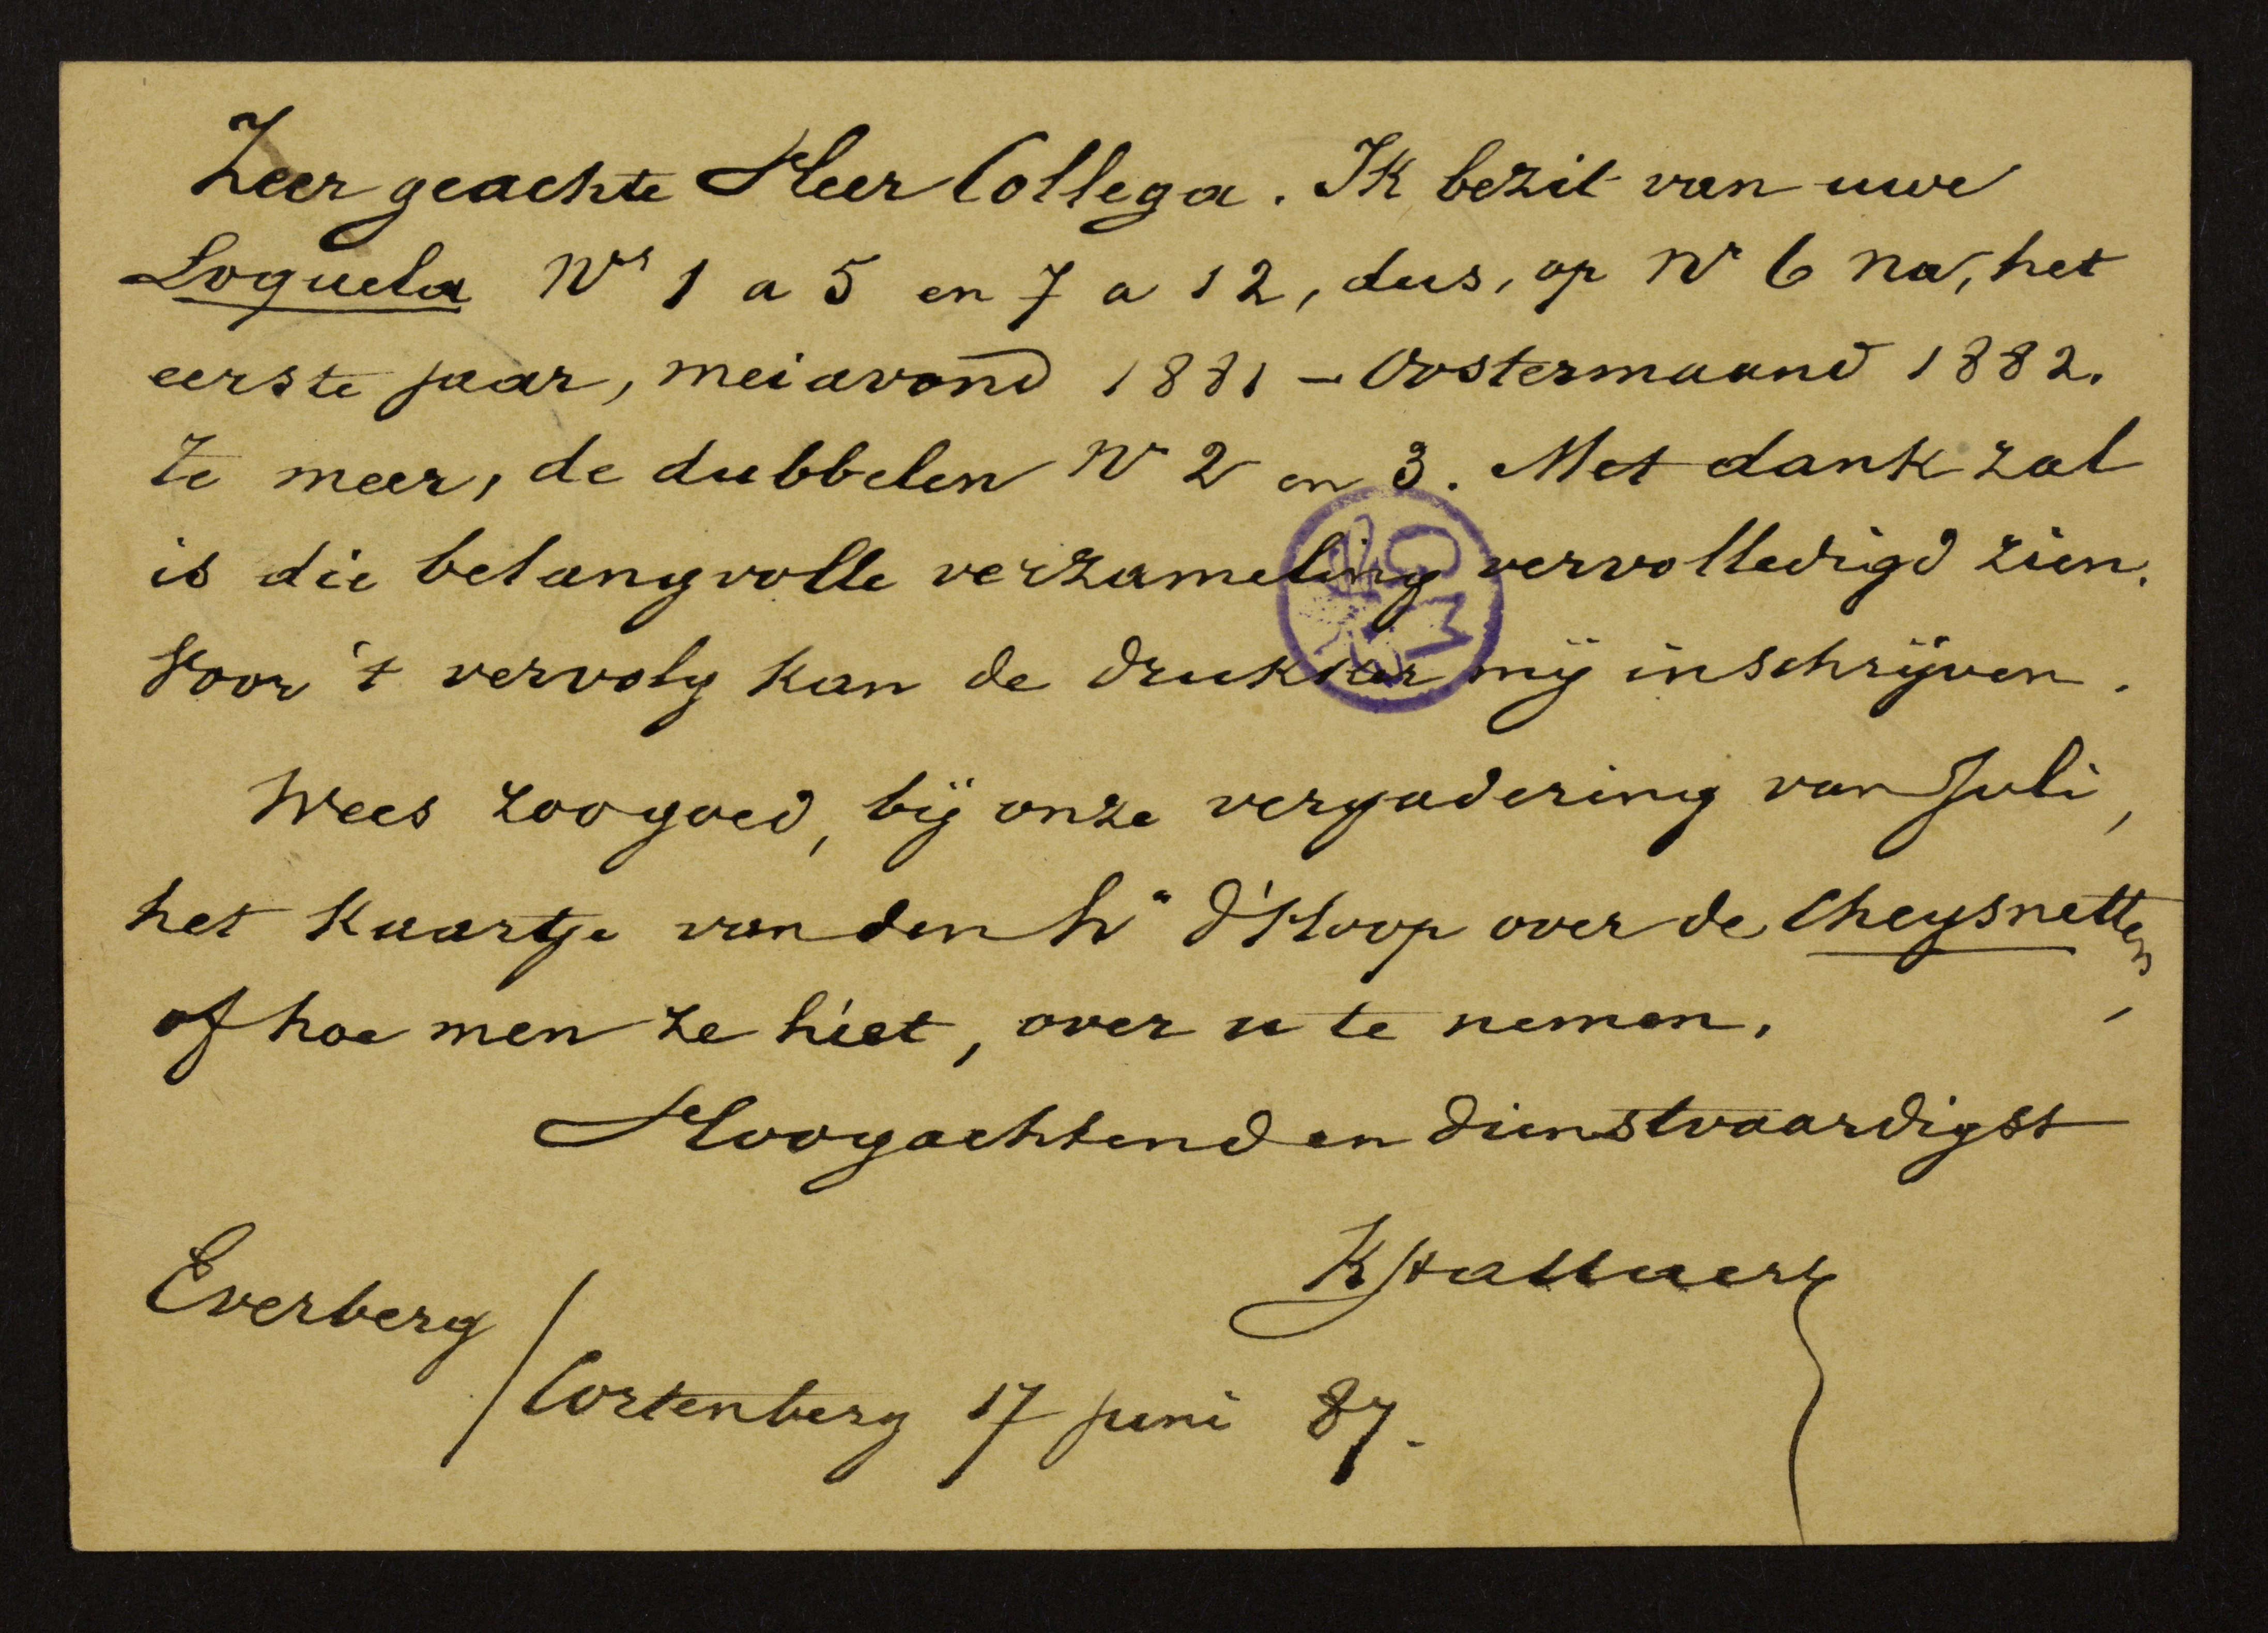 Zeer geachte Heer Collega. Ik bezit van uwe
Loquela Nrs 1 a 5 en 7 a 12, dus, op Nr 6 na, het
eerste jaar, meiavond 1881 – Oostermaand 1882.
Te meer, de dubbelen Nr 2 en 3. Met dank zal
is die belangvolle verzameling vervolledigd zien.
Voor 't vervolg kan de drukker mij inschrijven.
Wees zoo goed, bij onze vergadering van Juli,
het kaartje van den hr d'Hoop over de Cheysnetten,
of hoe men ze hiet, over u te nemen.
Hoogachtend en dienstvaardigst
K Stallaert
Everberg
/ Cortenberg 17 juni 87.